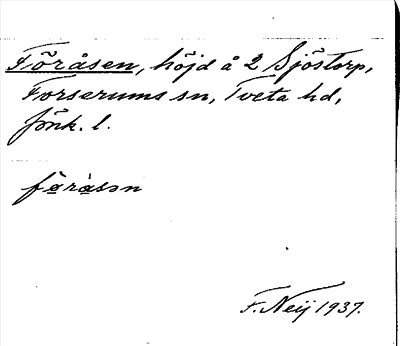 Föråsen, höjd å 2 Sjöstorp,
Forserums sn, Tveta hd,
Jönk. l.
fö̀rå̀sən
F. Neij 1937.